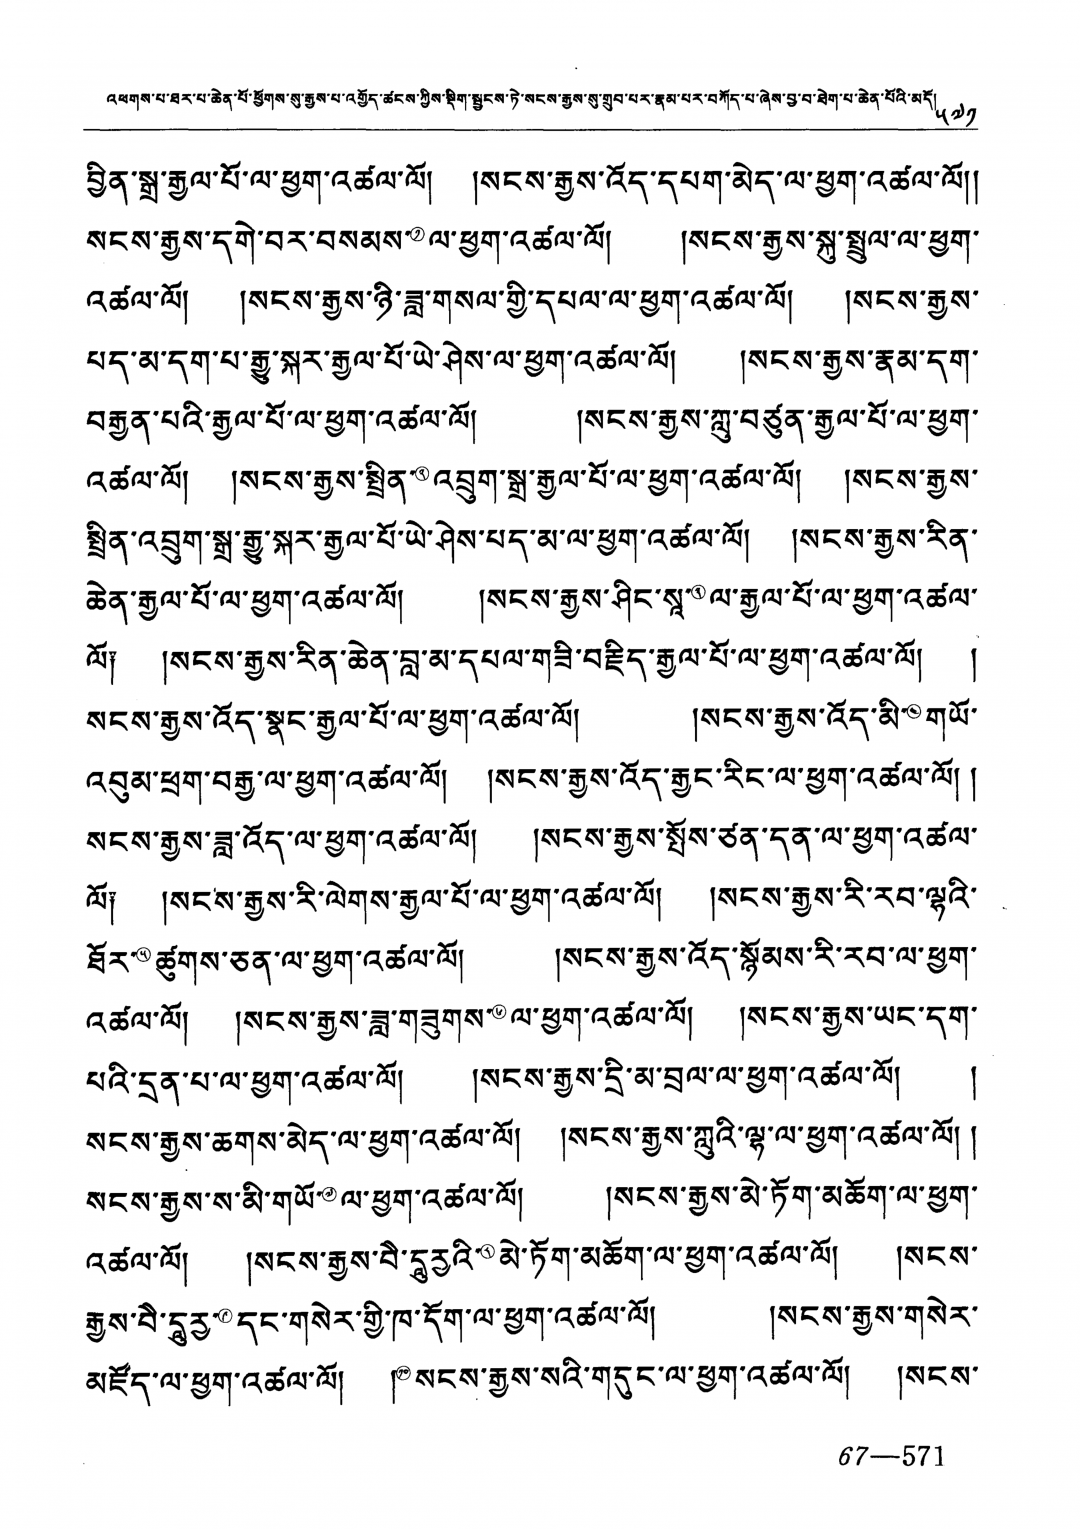 འཕགས་པ་ཐར་པ་ཆེན་པོ་ཕྱོགས་སུ་རྒྱས་པ་འགྱོད་ཚངས་ཀྱིས་སྡིག་སྦྱངས་ཏེ་སངས་རྒྱས་སུ་གྲུབ་པར་རྣམ་པར་བཀོད་པ་ཞེས་བྱ་བ་ཐེག་པ་ཆེན་པོའི་མདོ། ༥༧༡
བྱིན་སྒྲ་རྒྱལ་པོ་ལ་ཕྱག་འཚལ་ལོ། །སངས་རྒྱས་འོད་དཔག་མེད་ལ་ཕྱག་འཚལ་ལོ།།
སངས་རྒྱས་དགེ་བར་བསམས་ལ་ཕྱག་འཚལ་ལོ། །སངས་རྒྱས་སྐུ་སྤྲུལ་ལ་ཕྱག་
འཚལ་ལོ། །སངས་རྒྱས་ཉི་ཟླ་གསལ་གྱི་དཔལ་ལ་ཕྱག་འཚལ་ལོ། །སངས་རྒྱས་
པད་མ་དག་པ་རྒྱུ་སྐར་རྒྱལ་པོ་ཡེ་ཤེས་ལ་ཕྱག་འཚལ་ལོ། །སངས་རྒྱས་རྣམ་དག་
བརྒྱན་པའི་རྒྱལ་པོ་ལ་ཕྱག་འཚལ་ལོ། །སངས་རྒྱས་ཀླུ་བཙུན་རྒྱལ་པོ་ལ་ཕྱག་
འཚལ་ལོ། །སངས་རྒྱས་སྤྲིན་འབྲུག་སྒྲ་རྒྱལ་པོ་ལ་ཕྱག་འཚལ་ལོ། །སངས་རྒྱས་
སྤྲིན་འབྲུག་སྒྲ་རྒྱུ་སྐར་རྒྱལ་པོ་ཡེ་ཤེས་པད་མ་ལ་ཕྱག་འཚལ་ལོ། །སངས་རྒྱས་རིན་
ཆེན་རྒྱལ་པོ་ལ་ཕྱག་འཚལ་ལོ། །སངས་རྒྱས་ཤིང་སཱ་ལ་རྒྱལ་པོ་ལ་ཕྱག་འཚལ་
ལོ༑ །སངས་རྒྱས་རིན་ཆེན་བླ་མ་དཔལ་གཟི་བརྗིད་རྒྱལ་པོ་ལ་ཕྱག་འཚལ་ལོ། །
སངས་རྒྱས་འོད་སྣང་རྒྱལ་པོ་ལ་ཕྱག་འཚལ་ལོ། །སངས་རྒྱས་འོད་མི་གཡོ་
འབུམ་ཕྲག་བརྒྱ་ལ་ཕྱག་འཚལ་ལོ། །སངས་རྒྱས་འོད་རྒྱང་རིང་ལ་ཕྱག་འཚལ་ལོ། །
སངས་རྒྱས་ཟླ་འོད་ལ་ཕྱག་འཚལ་ལོ། །སངས་རྒྱས་སྤོས་ཙན་དན་ལ་ཕྱག་འཚལ་
ལོ༑ །སངས་རྒྱས་རི་ལེགས་རྒྱལ་པོ་ལ་ཕྱག་འཚལ་ལོ། །སངས་རྒྱས་རི་རབ་ལྟའི་
ཐོར་ཚུགས་ཅན་ལ་ཕྱག་འཚལ་ལོ། །སངས་རྒྱས་འོད་སྙོམས་རི་རབ་ལ་ཕྱག་
འཚལ་ལོ། །སངས་རྒྱས་ཟླ་གཟུགས་ལ་ཕྱག་འཚལ་ལོ། །སངས་རྒྱས་ཡང་དག་
པའི་དྲན་པ་ལ་ཕྱག་འཚལ་ལོ། །སངས་རྒྱས་དྲི་མ་བྲལ་ལ་ཕྱག་འཚལ་ལོ། །
སངས་རྒྱས་ཆགས་མེད་ལ་ཕྱག་འཚལ་ལོ། །སངས་རྒྱས་ཀླུའི་ལྷ་ལ་ཕྱག་འཚལ་ལོ། །
སངས་རྒྱས་ས་མི་གཡོ་ལ་ཕྱག་འཚལ་ལོ། །སངས་རྒྱས་མེ་ཏོག་མཆོག་ལ་ཕྱག་
འཚལ་ལོ། །སངས་རྒྱས་བཻ་དཱུརྱའི་མེ་ཏོག་མཆོག་ལ་ཕྱག་འཚལ་ལོ། །སངས་
རྒྱས་བཻ་དཱུརྱ་དང་གསེར་གྱི་ཁ་དོག་ལ་ཕྱག་འཚལ་ལོ། །སངས་རྒྱས་གསེར་
མཛོད་ལ་ཕྱག་འཚལ་ལོ། །སངས་རྒྱས་སའི་གདུང་ལ་ཕྱག་འཚལ་ལོ། །སངས་
67—571